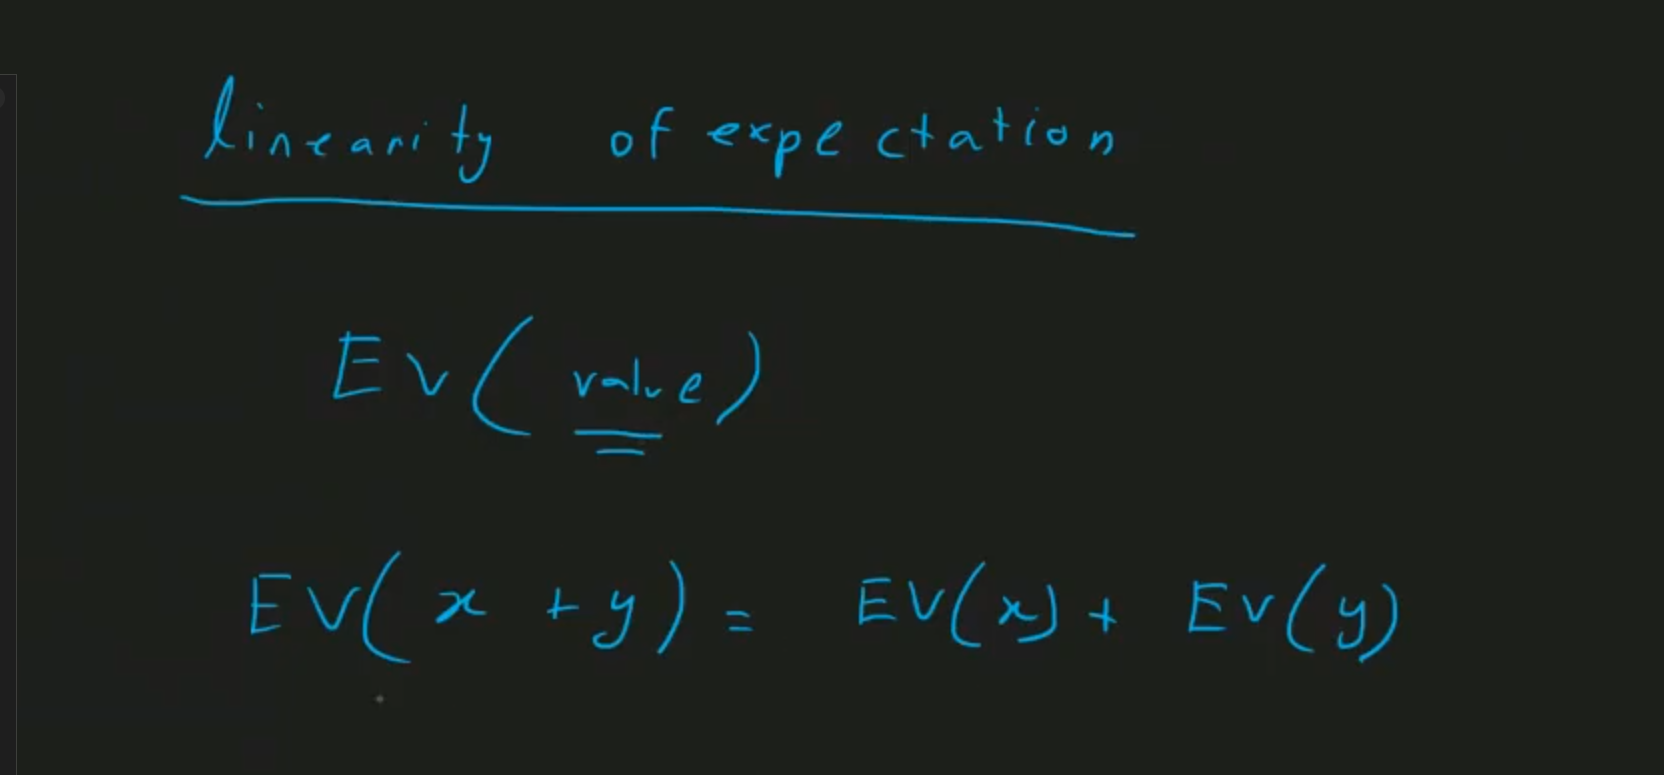 linearity of expectation
EV(value)
EV(x + y) = EV(x) + EV(y)